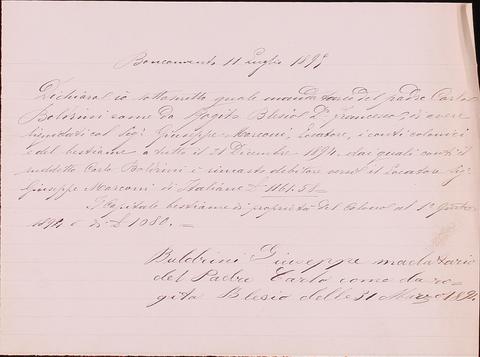 Buonconvento 11 Luglio 1895
Dichiaro io sottoscritto quale mandatario del padre Carlo
Boldrini come da Rogito Blesio Dr. Francesco, di avere
liquidati col Sig. Giuseppe Marconi, Locatore, i conti colonici
e del bestiame a tutto il 31 Dicembre 1894, dai quali conti il
suddetto Carlo Boldrini è rimasto debitore verso il Locatore Sig.
Giuseppe Marconi di Italiane £ 1161.51=
Il Capitale bestiame di proprietà del Colono al 1°
1894 è di £ 1080.=
Buldrini Giuseppe madatario
del Padre Carlo come da ro=
gito Blesio delle 31 Marzo 189